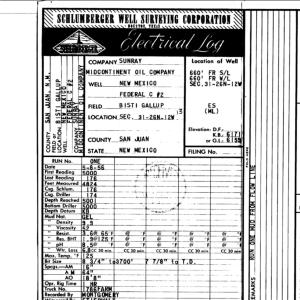 SCHLUMBERGER WELL SURVEYING CORPORATION
HOUSTON, TEXAS
Electrical Log
COMPANY SUNRAY
MIDCONTINENT OIL COMPANY
WELL NEW MEXICO
FEDERAL C #2
FIELD BISTI GALLUP
LOCATION SEC. 31-26N-12W
COUNTY SAN JUAN
STATE NEW MEXICO
Location of Well
660' FR S/L
660' FR W/L
SEC. 31-26N-12W
ES
(ML)
Elevation: D.F.:
K.B.
or G.L.:
FILING No.
COUNTY SAN JUAN, N.M.
FIELD or LOCATION BISTI GALLUP
WELL NEW MEXICO
FEDERAL C #2
COMPANY
MIDCONTINENT OIL COMPANY
RUN No. ONE
Date
First Reading 5000
Last Reading 176
Feet Measured 4824
Csg. Schlum. 176
Csg. Driller 174
Depth Reached 5001
Bottom Driller 5000
Depth Datum KB
Mud Nat. GEL
Density
Viscosity 52
Resist.
Res. BHT
pH
Wtr. Loss
CC 30 min.
CC 30 min.
CC 30 min.
Max. Temp. °F
Bit Size 8 3/4" to 3700' 7 7/8" to T.D.
Spcgs.—AM
AM 64"
AO 18'8"
Opr. Rig Time HR
Truck No.
Recorded by MONTGOMERY
REMARKS RAN ONE MUD FROM FLOW LINE